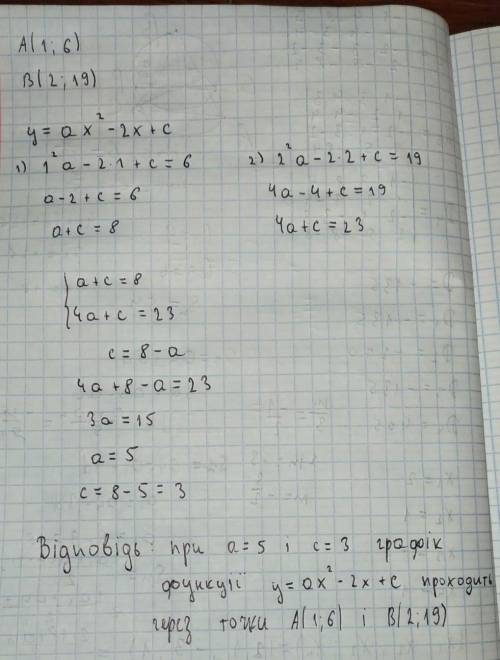 A(1; 6)
B(2; 19)
y = ax² - 2x + c
1) 1²a - 2·1 + c = 6
a - 2 + c = 6
a + c = 8
2) 2²a - 2·2 + c = 19
4a - 4 + c = 19
4a + c = 23
{ a + c = 8
4a + c = 23
c = 8 - a
4a + 8 - a = 23
3a = 15
a = 5
c = 8 - 5 = 3
Відповідь: при a = 5 і c = 3 графік
функції y = ax² - 2x + c проходить
через точки A(1; 6) і B(2; 19)